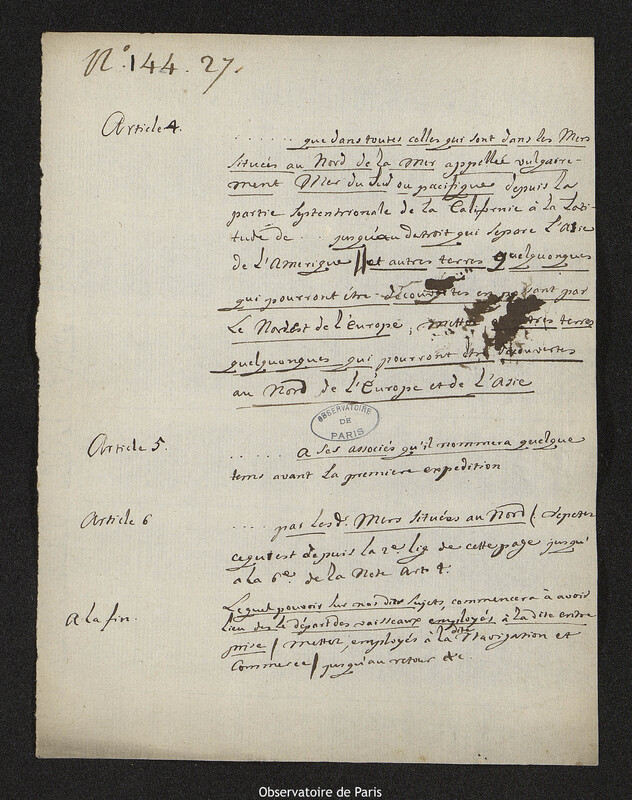 N.° 144. 27.
Article 4.
. . . . . . que dans toutes celles qui sont dans les Mers
situées au Nord de la Mer appellée vulgaire-
ment Mer du Sud ou pacifique depuis la
partie septentrionale de la Californie à la Lati-
tude de . . . jusqu'au detroit qui separe l'Asie
de l'Amerique || et autres terres quelquonques
qui pourront être découvertes en passant par
Le Nordest de l'Europe, mettez autres terres
quelquonques qui pourront être découvertes
au Nord de l'Europe et de l'Asie
OBSERVATOIRE
DE
PARIS
Article 5.
. . . . . . a ses associés qu'il nommera quelque
tems avant la premiere expedition
Article 6
. . . . par les d. Mers situées au Nord ( repetez
ce qui est depuis la 2e. lig de cette page jusqu'
a la 6e. de la Note Art. 4.
A la fin.
Lequel pouvoir sur nos dits sujets, commencera à avoir
lieu des le départ des vaisseaux employés à la dite entre
prise / mettez, employés à la dite Navigation et
Commerce / jusqu'au retour &c.
Observatoire de Paris